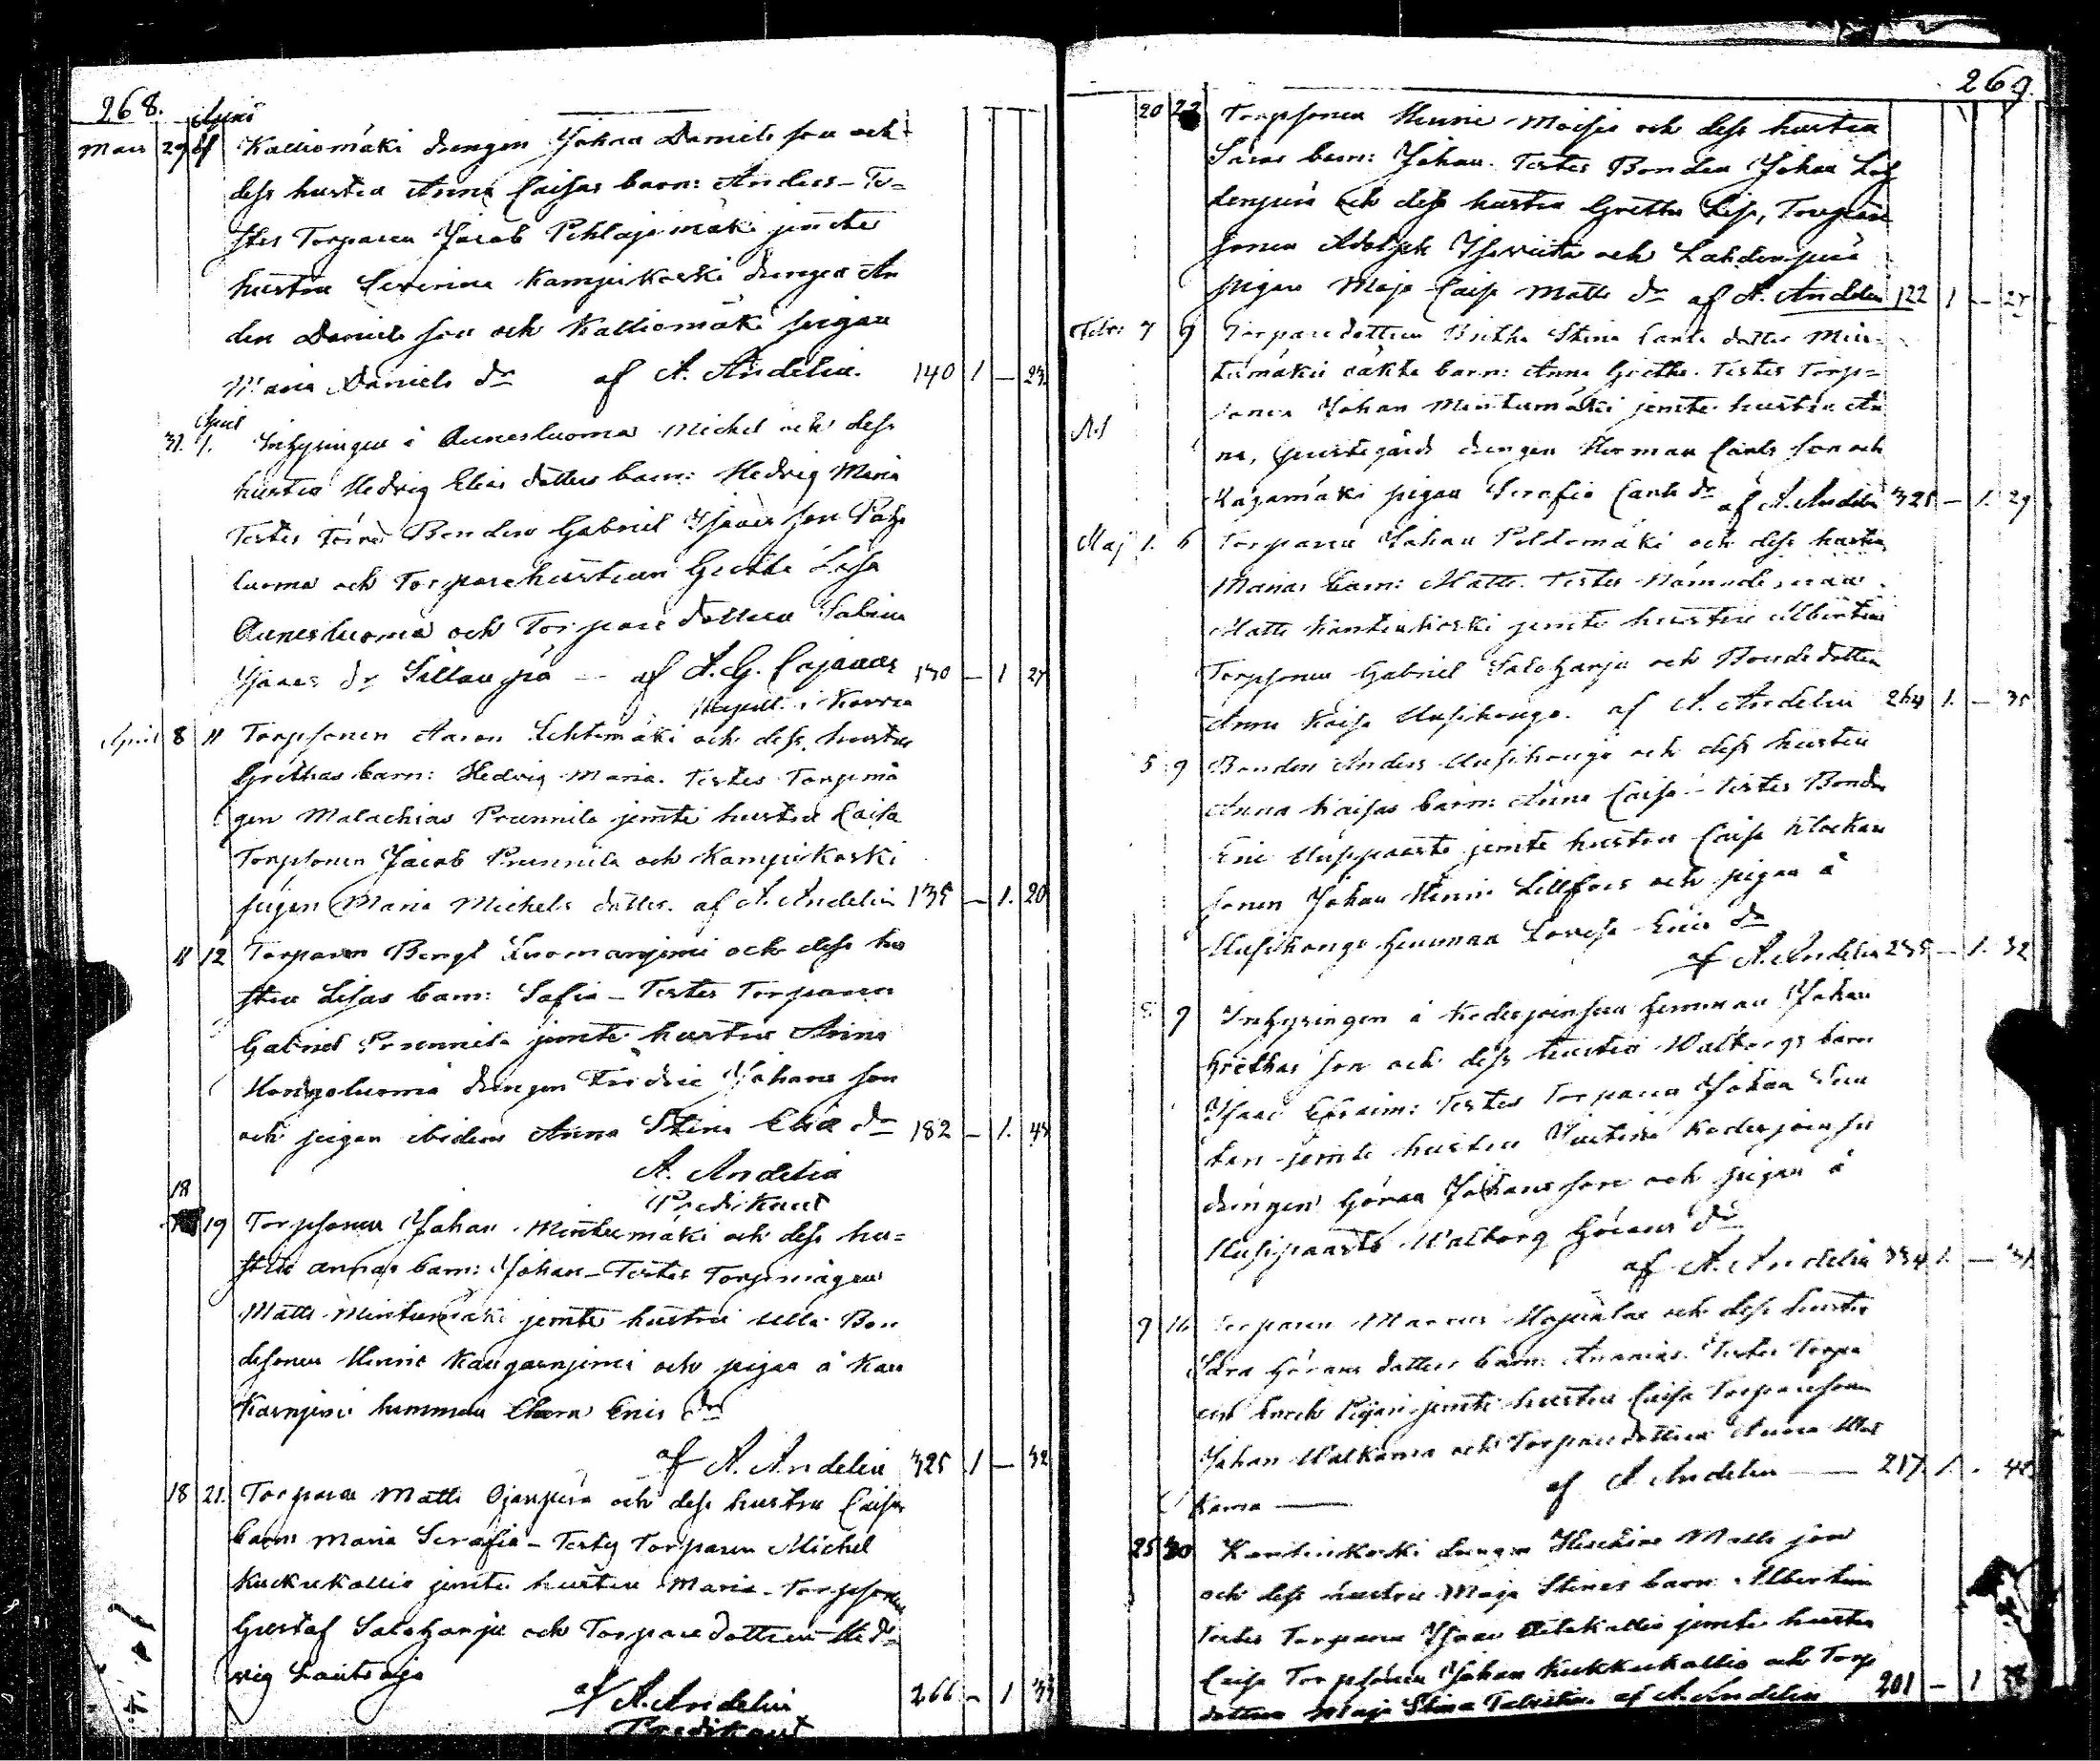 268.
April
Mars 29 Kalliomäki drengen Johan Daniels son och
dess hustru Anna Caisas barn: Anders – Te=
stes Torparen Jacob Pihlajamäki jemte
hustru Severina Kampikoski drengen An
ders Daniels son och Kalliomäki pigan
Maria Daniels dr af A. Andelin. 140 1 – 23
April
31. 1. Inhysingen i Aunesluoma Michel och dess
hustru Hedvig Elias dotters barn: Hedvig Maria
Testes Bonden Gabriel Isaacs son
luoma och Torparehustrun Gretha Lisa
Aunesluoma och Torpare dottren Sabina
Isaacs dr Sillanpä – af A. G. Cajanus 130 – 1 27
i
April 8 11 Torpsonen Aaron Lehtimäki och dess hustru
Grethas barn: Hedvig Maria. Testes Torpmå
gen Malachias Prunnila jemte hustru Caisa
Torpsonen Jacob Prunnila och Kampikoski
pigan Maria Michels dotter. af A. Andelin 135 – 1. 20
11 12 Torparen Bengt Luomanjemi och dess hu
stru Lisas barn: Safia – Testes Torparen
Gabriel Prunnila jemte hustru Anna
Hongoluoma drengen Fredric Johans son
och pigan ibidem Anna Stina Elia dr 182 – 1. 45
A. Andelin
Predikant
18
19 Torpsonen Johan Mintumäki och dess hu=
stru annas barn: Johan – Testes Torpmågen
Matts Mintumäki jemte hustru Ulla Bon
desonen Henric Kangasnjemi och pigan å Kan
kasnjemi hemman Clara Erics dr
af A. Andelin 325 1 – 32
18 21. Torparen Matts Ojanperä och dess hustru Caisas
barn: Maria Serafia – Testes Torparen Michel
Kuckukallio jemte hustru Maria – Torpsonen
Gustaf Saloharju och Torpare dottren Hed=
vig Lautaoja
af A. Andelin 266 – 1 33
Predikant
269.
20 22 Torpsonen Henric Moisio och dess hustru
Saras barn: Johan. Testes Bonden Johan Lah
denperä och dess hustru Gretha Lisa, Torpare
sonen Adolph Ishoviita och Lahdenperä
pigan Maja Caisa Matts dr af A. Andelin 122 1 – 27
Febr: 7 9 Torparedottren Britha Stina Carls dotter Min=
tumäkis oäkta barn: Anna Gretha. Testes Torp=
sonen Johan Mintumäki jemte hustru An
na, drengen Herman Carls son och
pigan Serafia Carls dr af A. Andelin 325 – 1. 29
Maj 1. 6 Torparen Johan Peldomäki och dess hustru
Marias barn: Matts. Testes Nämndeman
Matts Kantinkoski jemte hustru Albertina
Torpsonen Gabriel Saloharju och Bondedottren
Anna Kaisa af A. Andelin 264 1. – 35
5 9 Bonden Anders och dess hustru
Anna Kaisas barn: Anna Caisa – Testes Bonden
Eric jemte hustru Caisa Klockare
sonen Johan Henric Lillfors och pigan å
hemman Lovisa Erics dr
af A. Andelin 235 – 1. 32
9 Inhysingen å hemman Johan
Grethas son och dess hustru Walborgs barn
Isaac Efraim: Testes Torparen Johan
jemte hustru Justina
drengen Göran Johans son och pigan å
Walborg Görans dr
af A. Andelin 334 1. – 31.
9 16 Torparen Marcus och dess hustru
Sara Görans dotters barn: Ananias. Testes Torpa
ren jemte hustru Caisa Torparesonen
Johan Walkama och Torparedottren Anna Wal
kama –– af A. Andelin –– 217. 1. – 42
25 30 Kantinkoski drengen Matts son
och dess hustru Maja Stinas barn: Albertina
Testes Torparen Isaac jemte hustru
Caisa Torpsonen Johan Kukkukallio och Torp
dottren Maja Stina af A. Andelin 201 – 1